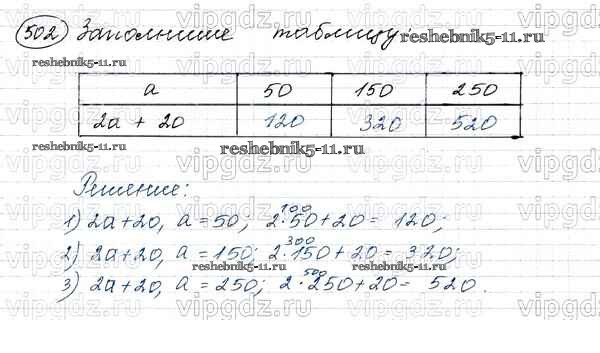 502 Заполните таблицу:
reshebnik5-11.ru
reshebnik5-11.ru
a 50 150 250
2a + 20 120 320 520
reshebnik5-11.ru
reshebnik5-11.ru
Решение:
100
1) 2a+20, a = 50; 2·50+20 = 120;
300
2) 2a+20, a = 150; 2·150+20 = 320;
reshebnik5-11.ru
reshebnik5-11.ru
500
3) 2a+20, a = 250; 2·250+20 = 520.
vipgdz.ru